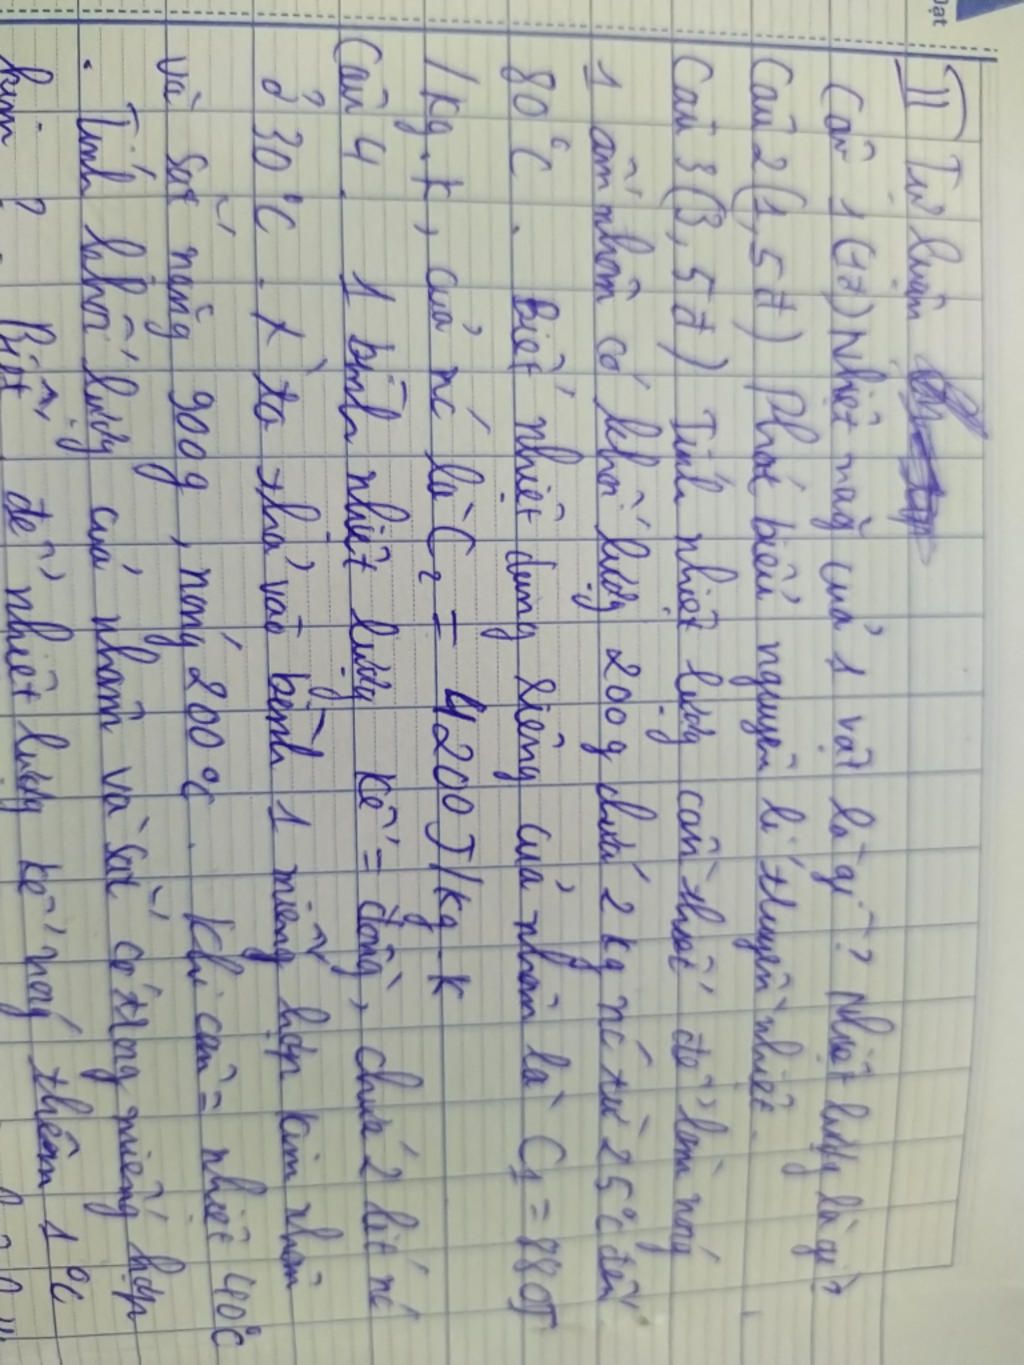 Đạt
II Tự luận
Câu 1 (1đ) Nhiệt năng của 1 vật là gì? Nhiệt lượng là gì?
Câu 2 (1,5đ) Phát biểu nguyên lí truyền nhiệt.
Câu 3 (3,5đ) Tính nhiệt lượng cần thiết để làm nóng
1 ấm nhôm có khối lượng 200g chứa 2 kg nc từ 25°C đến
80°C. Biết nhiệt dung riêng của nhôm là C1 = 880J
/kg.K, của nc là C2 = 4200J/kg.K
Câu 4. 1 bình nhiệt lượng kế = đồng, chứa 2 lít nc
ở 30°C. ta thả vào bình 1 miếng hợp kim nhôm
và sắt nặng 900g, nóng 200°C. Khi cân = nhiệt 40°C
. Tính khối lượng của nhôm và sắt có trong miếng hợp
kim? Biết, để nhiệt lượng kế nóng thêm 1°C